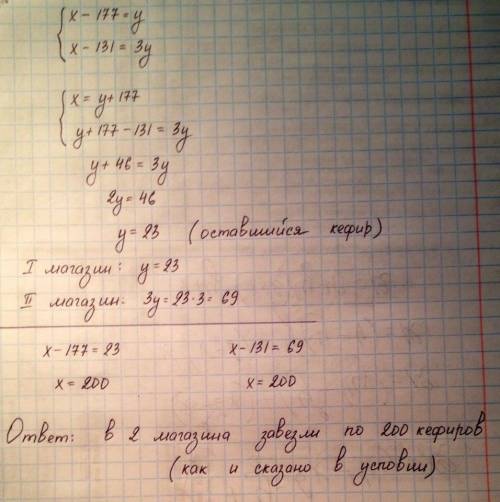 x - 177 = y
x - 131 = 3y
x = y + 177
y + 177 - 131 = 3y
y + 46 = 3y
2y = 46
y = 23 (оставшийся кефир)
I магазин: y = 23
II магазин: 3y = 23 · 3 = 69
x - 177 = 23 x - 131 = 69
x = 200 x = 200
Ответ: в 2 магазина завезли по 200 кефиров
(как и сказано в условии)